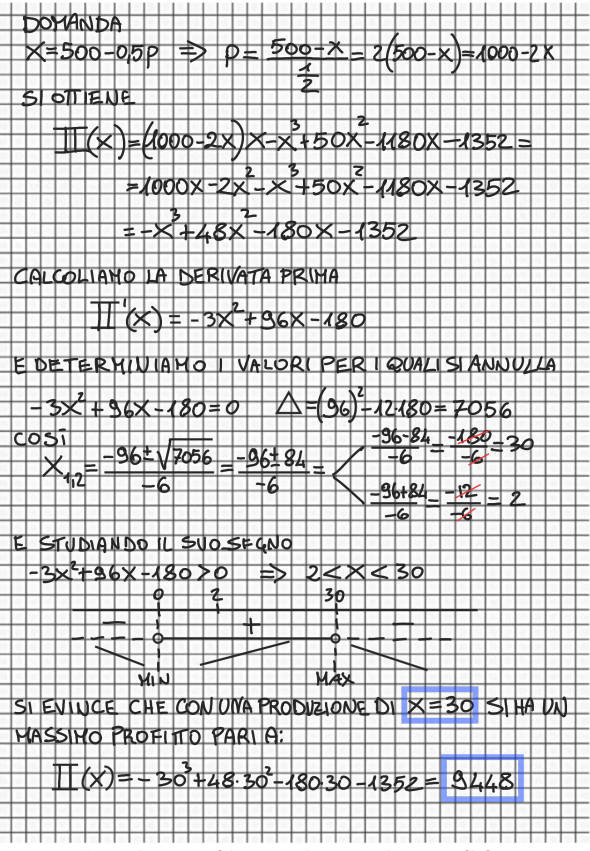 DOMANDA
X=500-0,5P ⇒ P= (500-X)/(1/2) = 2(500-X)=1000-2X
SI OTTIENE
Π(X)=(1000-2X)X-X³+50X²-1180X-1352=
=1000X-2X²-X³+50X²-1180X-1352
=-X³+48X²-180X-1352
CALCOLIAMO LA DERIVATA PRIMA
Π'(X)=-3X²+96X-180
E DETERMINIAMO I VALORI PER I QUALI SI ANNULLA
-3X²+96X-180=0 Δ=(96)²-12·180=7056
COSÌ
X₁,₂= (-96±√7056)/-6 = (-96±84)/-6 =
(-96-84)/-6 = -180/-6 = 30
(-96+84)/-6 = -12/-6 = 2
E STUDIANDO IL SUO SEGNO
-3X²+96X-180>0 ⇒ 2<X<30
0 2 30
- + -
MIN MAX
SI EVINCE CHE CON UNA PRODUZIONE DI X=30 SI HA UN
MASSIMO PROFITTO PARI A:
Π(X)=-30³+48·30²-180·30-1352= 9448